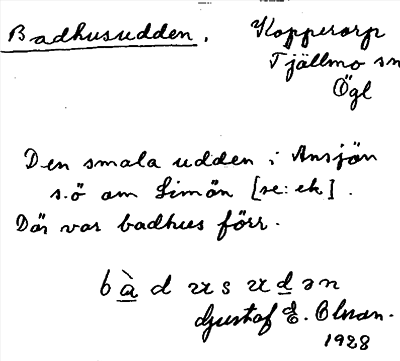 Badhusudden. Kopperorp
Tjällmo sn
Ögl
Den smala udden i Ansjön
s.ö om Limön [se: ek].
Där var badhus förr.
Gustaf E. Olson.
1928